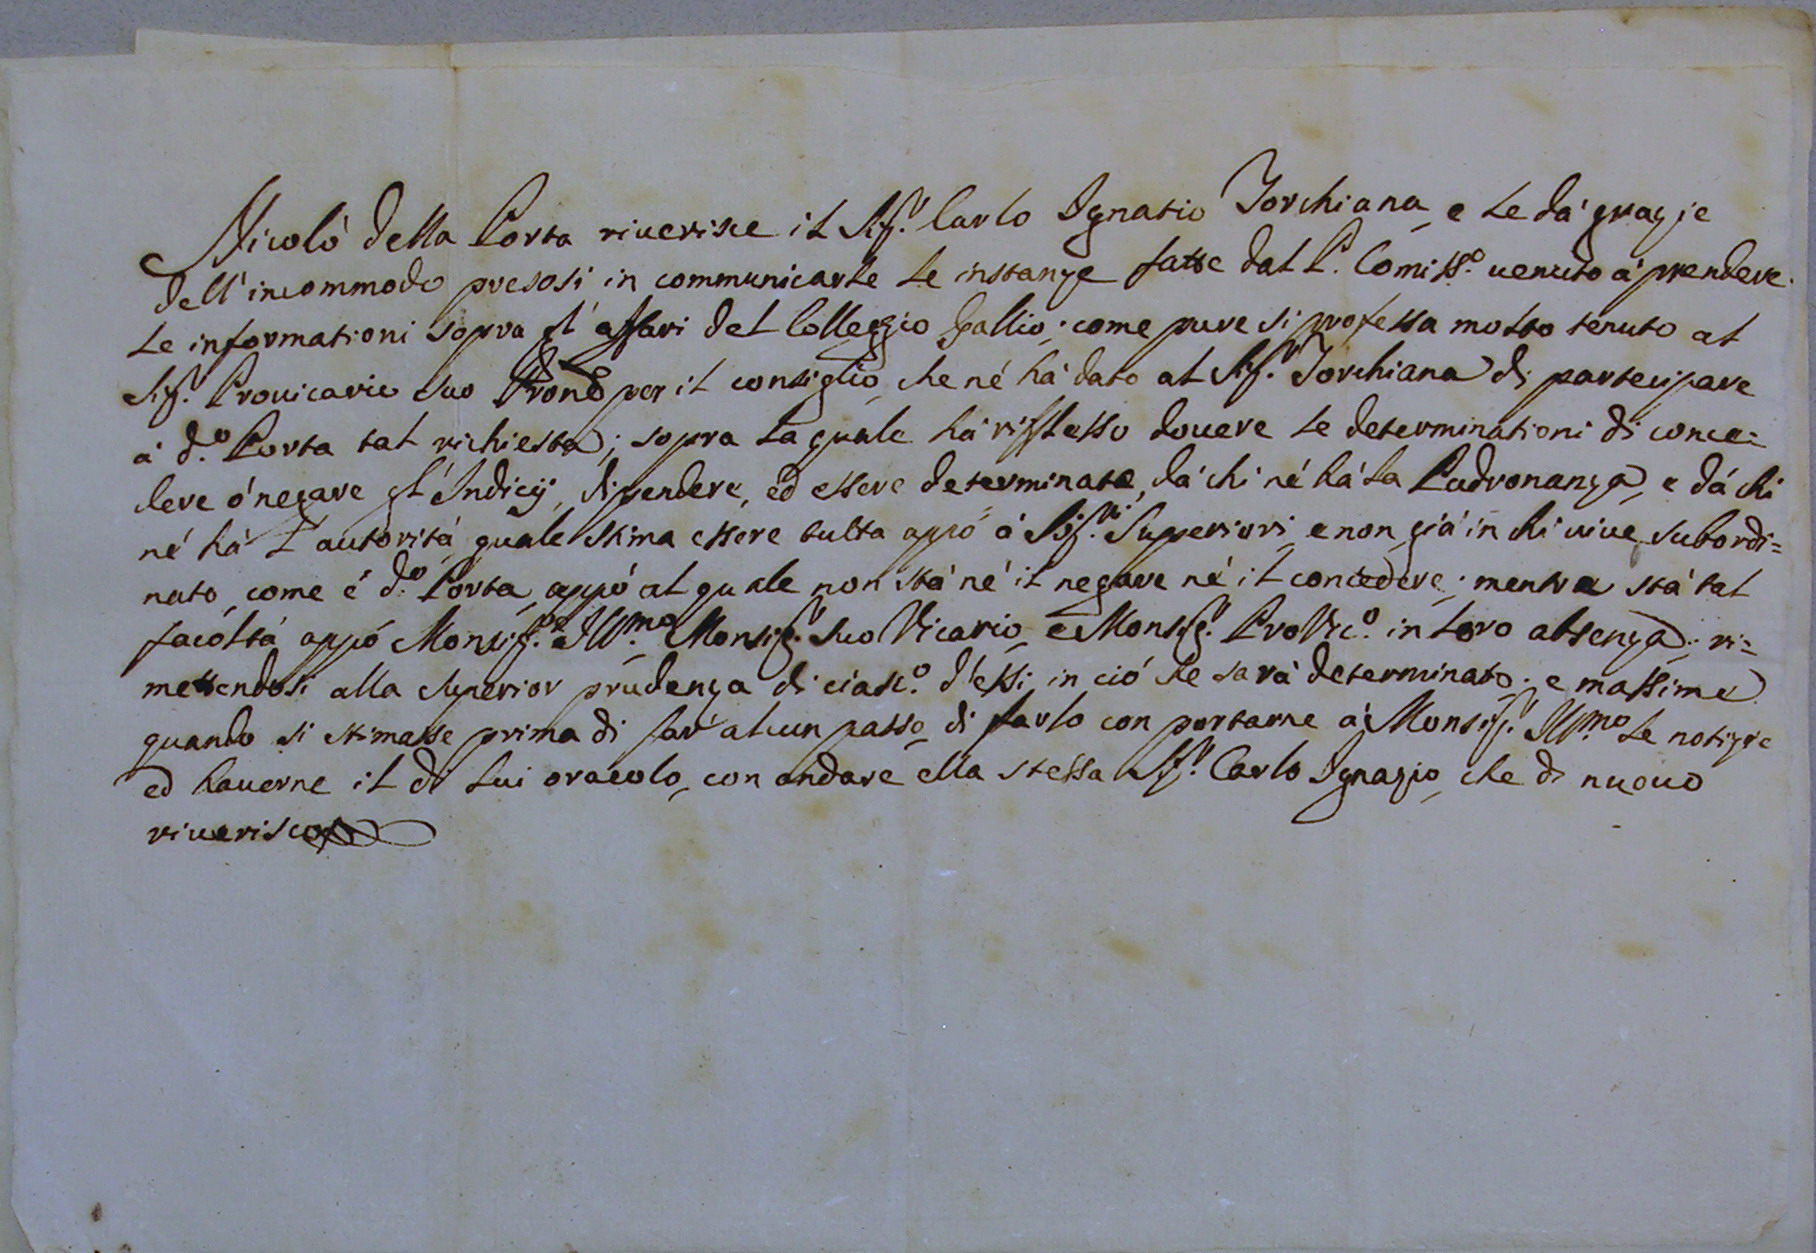 Nicolò della Porta riverisce il Sig.r Carlo Ignatio Torchiana, e le dà grazie
dell'incommodo presosi in communicarle le instanze fatte dal P. Comiss.o venuto à prendere
le informationi sopra gl'affari del Colleggio Gallio; come pure si professa molto tenuto al
Sig.r Provicario suo Prone per il consiglio, che né hà dato al Sig.r Torchiana di partecipare
à d.o Porta tal richiesta; sopra la quale hà riflesso dovere le determinationi di conce:
dere ò negare gl'Indicij, dipendere, ed essere determinate, dà chi né hà la Padronanza, e dà chi
né hà l'autorità, quale stima essere tutta appò à Sig.ri Superiori, e non già in chi vive subordi=
nato, come é d.o Porta, appò al quale non stà né il negare né il concedere; mentre stà tal
facoltà appò Monsig.r Ill.mo Monsig.r suo Vicario, e Monsig.r ProVic.o in loro absenza; ri=
mettendosi alla superior prudenza di ciasc.o d'essi in ciò che sarà determinato; e massime
quando si stimasse prima di far alcun passo, di farlo con portarne à Monsig.r Ill.mo le notizie
ed haverne il di lui oracolo, con andare ella stessa Sig.r Carlo Ignazio, che di nuovo
riverisco